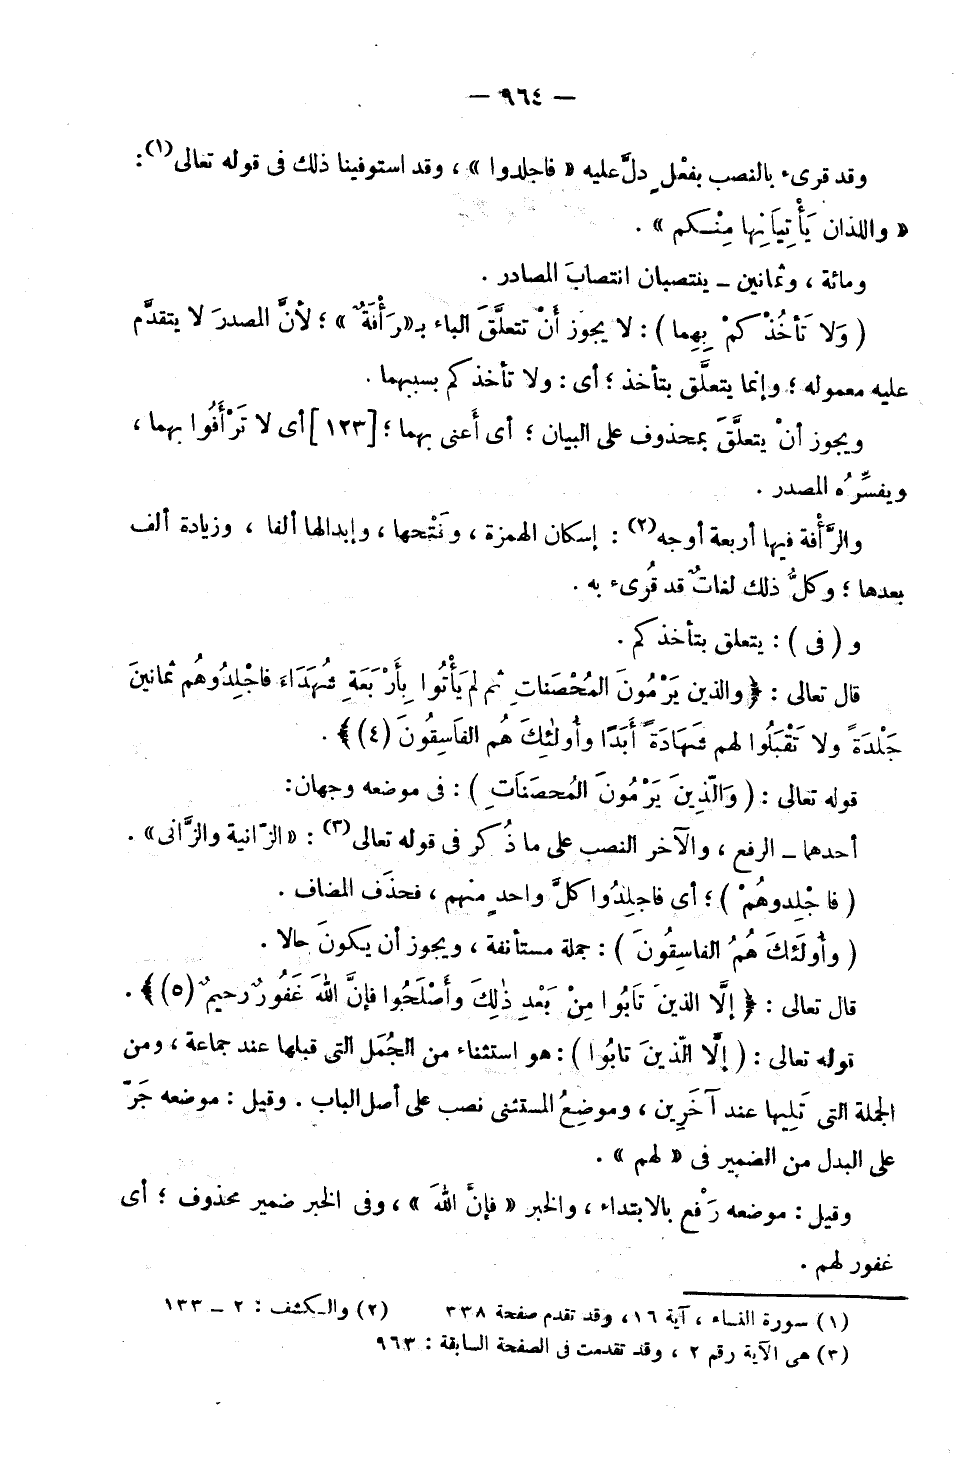 — ٩٦٤ —
وقد قرىء بالنصب بفعْلٍ دلَّ عليه « فاجلدوا » ، وقد استوفينا ذلك فى قوله تعالى(١) :
« واللذان يَأْتِيَانِها مِنْكم » .
ومائة ، وثمانين ــ ينتصبان انتصابَ المصادر .
( وَلا تَأخُذْكمْ بِهِما ) : لا يجوز أَنْ تتعلَّقَ الباء بـ«رَأْفَةٌ » ؛ لأنَّ المصدرَ لا يتقدَّم
عليه معموله ؛ وإنما يتعلَّق بتأخذ ؛ أى : ولا تأخذكم بسببهما .
ويجوز أنْ يتعلَّقَ بمحذوف على البيان ؛ أى أَعنى بهما ؛ [١٢٣] أى لا تَرْأَفُوا بهما ،
ويفسِّرُه المصدر .
والرَّأْفة فيها أربعة أوجه(٢) : إسكان الهمزة ، وفَتْحها ، وإبدالها ألفا ، وزيادة ألف
بعدها ؛ وكلُّ ذلك لغاتٌ قد قُرىء به .
و ( فى ) : يتعلق بتأخذكم .
قال تعالى : ﴿ والذين يَرْمُونَ المُحْصَناتِ ثم لم يَأْتُوا بِأَرْبَعَةِ شُهَدَاءَ فاجْلِدُوهُم ثمانينَ
جَلْدَةً ولا تَقْبَلُوا لهم شَهادَةً أَبَدًا وأُولٰئِكَ هُم الفَاسِقُونَ (٤)﴾ .
قوله تعالى : ( وَالّذِينَ يَرْمُونَ المُحصَنَاتِ ) : فى موضعه وجهان:
أحدهما ــ الرفع ، والآخر النصب على ما ذُكر فى قوله تعالى(٣) : «الزّانية والزَّانى» .
( فاجْلِدوهُمْ ) ؛ أى فاجلِدُوا كلَّ واحدٍ منهم ، فحذَف المضاف .
( وأُولَئكَ هُمُ الفاسِقُونَ ) : جملة مستأنفة ، ويجوز أن يكونَ حالا .
قال تعالى : ﴿ إلَّا الذينَ تَابُوا مِنْ بَعْدِ ذٰلِكَ وأَصْلَحُوا فإنَّ اللهَ غَفُورٌ رحيمٌ (٥)﴾ .
قوله تعالى : ( إلَّا الّذينَ تابُوا ) : هو استثناء من الجُمَل التى قبلها عند جماعة ، ومن
الجملة التى تَلِيها عند آخَرِين ، وموضِعُ المستثنى نصب على أصل الباب . وقيل : موضعه جَرّ
على البدل من الضمير فى « لهم » .
وقيل : موضعه رَفْع بالابتداء ، والخبر « فإنَّ اللهَ » ، وفى الخبر ضمير محذوف ؛ أى
غفور لهم .
(١) سورة النساء ، آية ١٦، وقد تقدم صفحة ٣٣٨ (٢) والـكشف : ٢ ــ ١٣٣
(٣) هى الآية رقم ٢ ، وقد تقدمت فى الصفحة السابقة : ٩٦٣